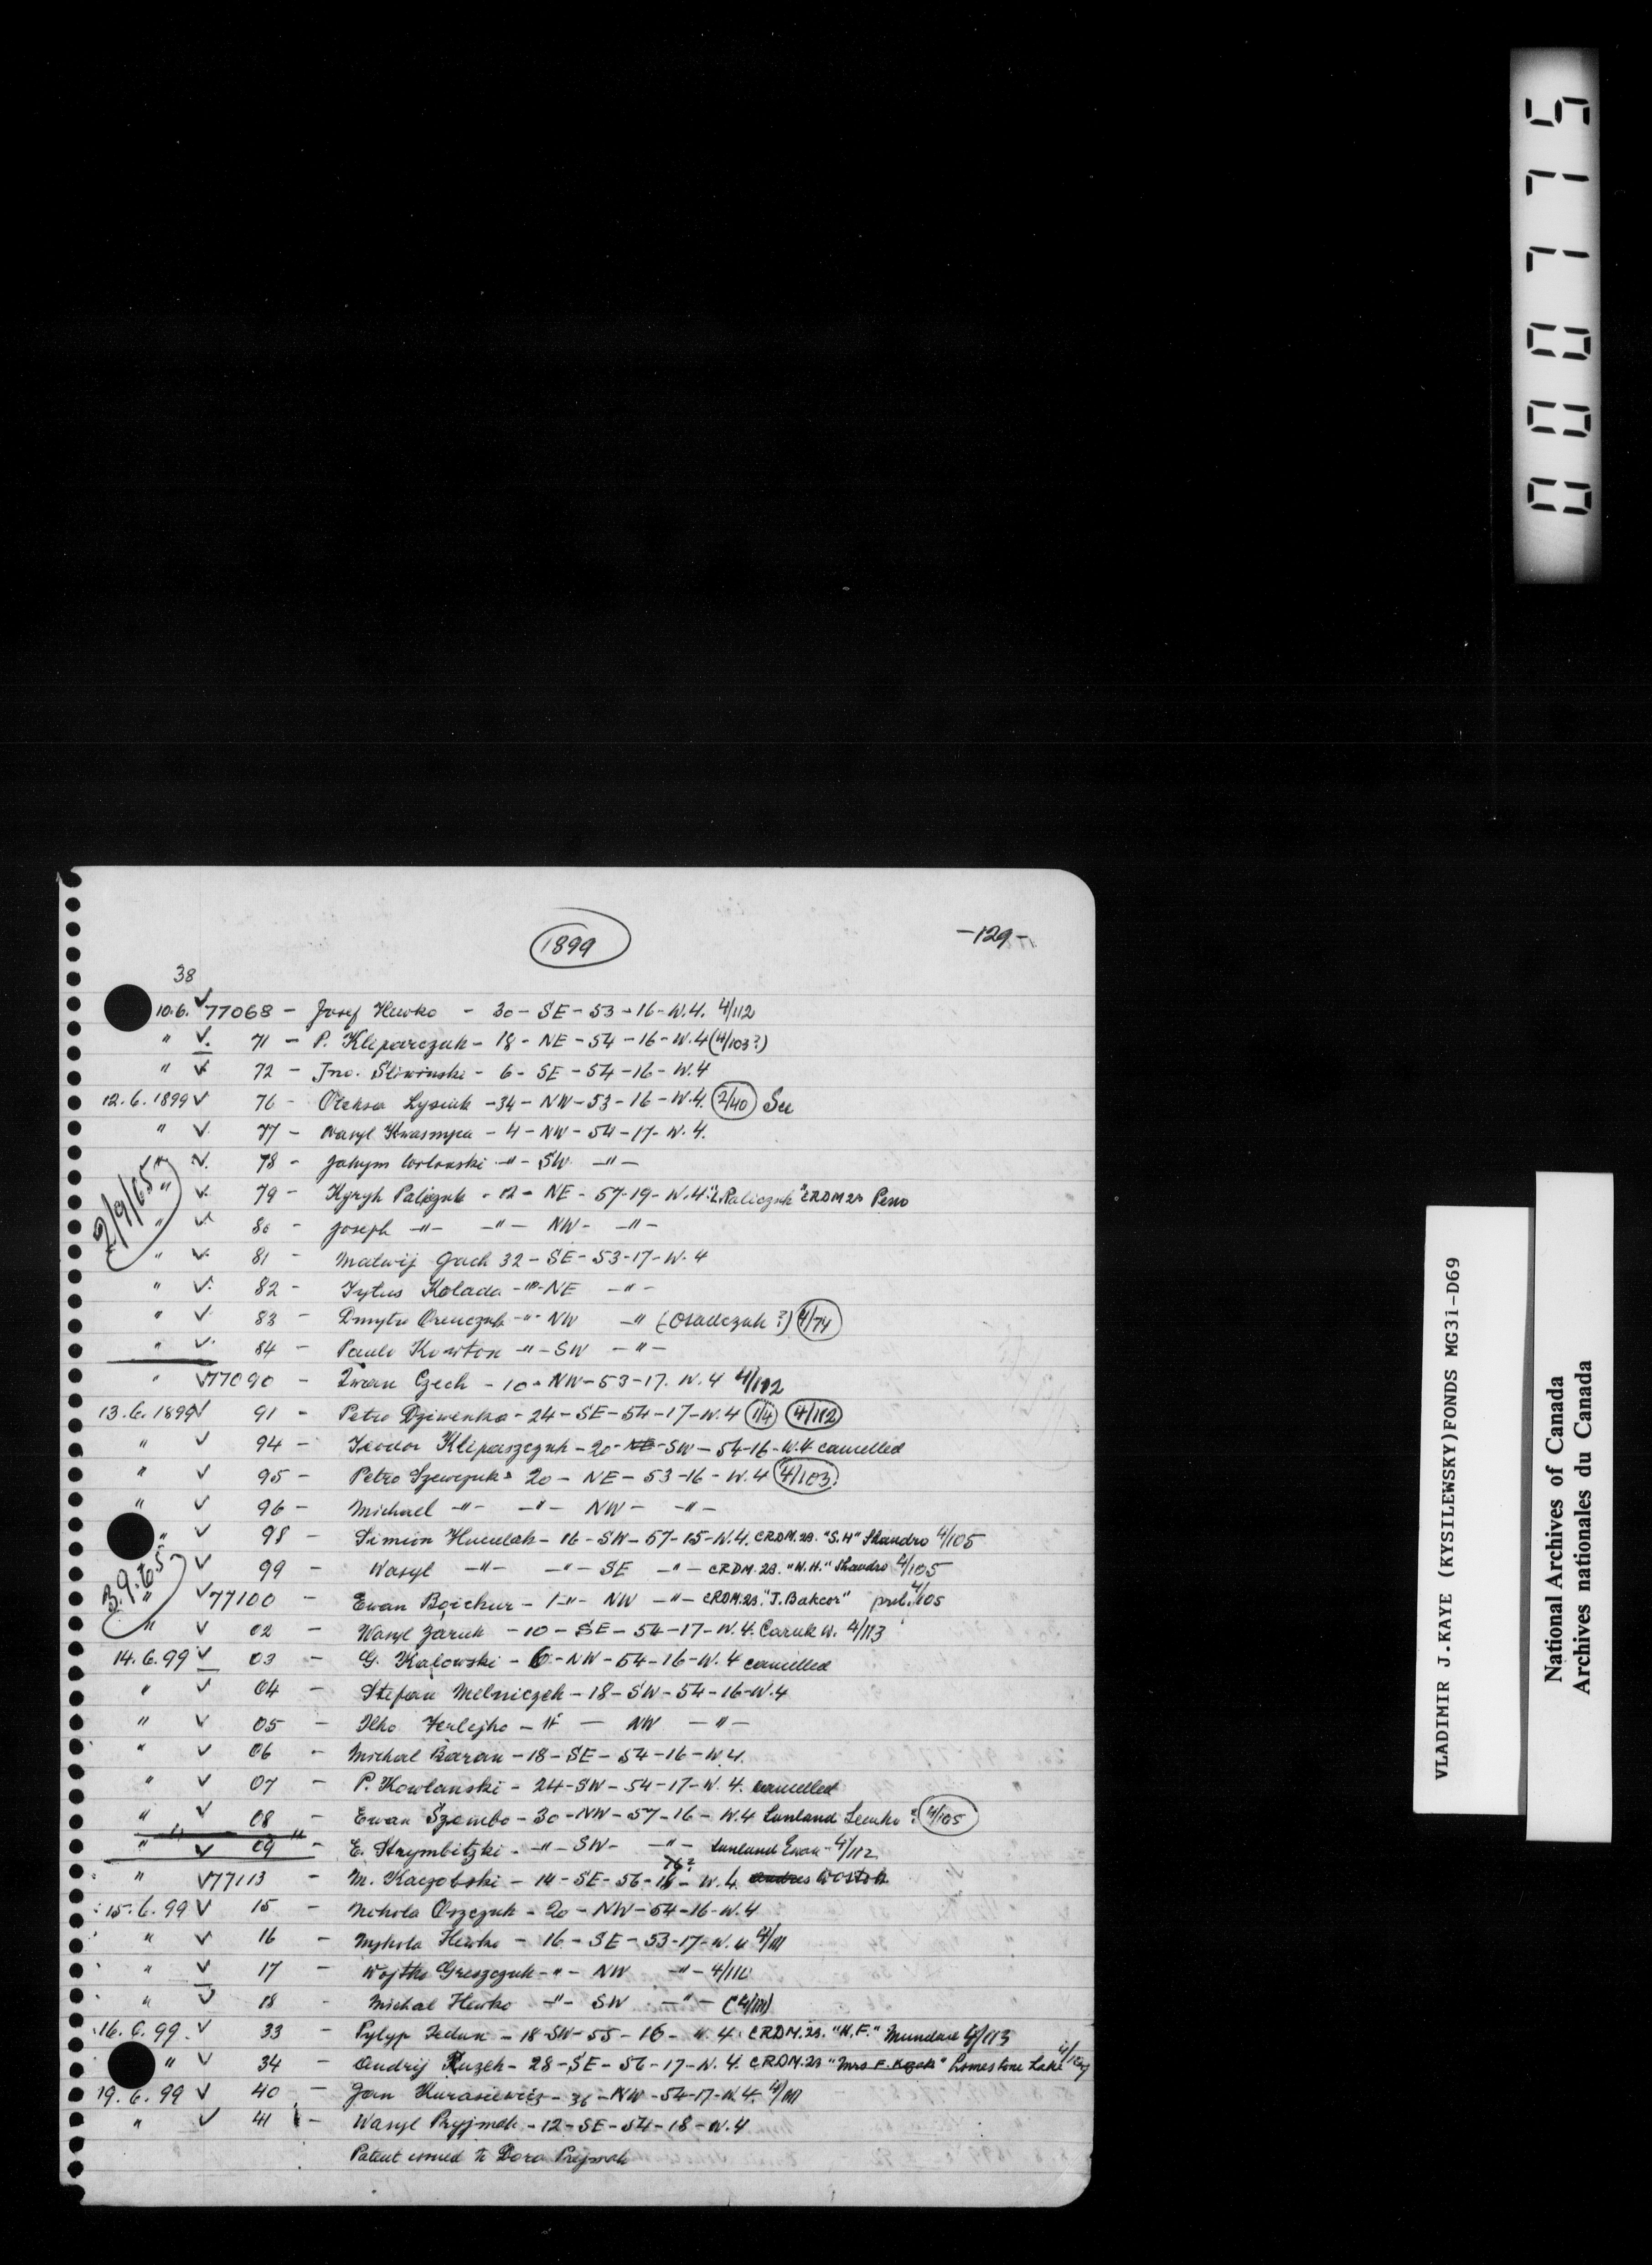 000775
VLADIMIR J.KAYE (KYSILEWSKY)FONDS MG31-D69
National Archives of Canada
Archives nationales du Canada
1899
-129-
38
10.6. ✓ 77068 - Josef Hewko - 30 - SE - 53 - 16 - W.4. 4/112
" ✓. 71 - P. Kliparczuk - 18 - NE - 54 - 16 - W.4 (4/103?)
" ✓ 72 - Jno. Sliwinski - 6 - SE - 54 - 16 - W.4
12.6.1899 ✓ 76 - Oleksa Lysiuk - 34 - NW - 53 - 16 - W.4. 2/40
" ✓ 77 - Wasyl Kwasnycia - 4 - NW - 54 - 17 - W.4.
" ✓. 78 - Jakym - " - SW - " -
2/9/65
" ✓ 79 - Kyryk Paliczuk - 12 - NE - 57 - 19 - W.4 "Paliczuk" CRDM 23 Peno
" ✓ 80 - Joseph - " - - " - NW - - " -
" ✓ 81 - Matwij Gach 32 - SE - 53 - 17 - W.4
" ✓. 82 - Tytus Kolada - " - NE - " -
" ✓ 83 - Dmytro - " - NW - " (Osadczuk?) 4/74
" ✓ 84 - Pawlo Kowton - " - SW - " -
" ✓ 77090 - Iwan Czech - 10 - NW - 53 - 17. W.4 4/112
13.6.1899 ✓ 91 - Petro Dziwenka - 24 - SE - 54 - 17 - W.4 1/4 4/112
" ✓ 94 - Teodor Kliparszczuk - 20 - NE - SW - 54 - 16 - W.4 cancelled
" ✓ 95 - Petro Szewczuk - 20 - NE - 53 - 16 - W.4 4/103
" ✓ 96 - Michael - " - - " - NW - - " -
" ✓ 98 - Simion Huculak - 16 - SW - 57 - 15 - W.4. CRDM.23. "S.H" Shandro 4/105
" ✓ 99 - Wasyl - " - - " - SE - " - CRDM.23. "W.H." Shandro 4/105
3.9.65
" ✓ 77100 - Ewan Boichur - 1 - " - NW - " - CRDM.23. "J. Bakcor" prob. 4/105
" ✓ 02 - Wasyl Zaruk - 10 - SE - 54 - 17 - W.4. Caruk W. 4/113
14.6.99 ✓ 03 - G. Kalowski - 6 - NW - 54 - 16 - W.4 cancelled
" ✓ 04 - Stefan Melniczek - 18 - SW - 54 - 16 - W.4
" ✓ 05 - Ilko - " - NW - " -
" ✓ 06 - Michal Baran - 18 - SE - 54 - 16 - W.4.
" ✓ 07 - P. Kowlanski - 24 - SW - 54 - 17 - W.4. cancelled
" ✓ 08 - Ewan Szembo - 30 - NW - 57 - 16 - W.4 Sunland 4/105
" ✓ 09 - E. Strymbitzki - " - SW - - " - Sunland Ewan 4/112
" ✓ 77113 - M. Kaczobski - 14 - SE - 56 - 16 - W.4. Andrew Wostok
16?
15.6.99 ✓ 15 - Nikola Oszczuk - 20 - NW - 54 - 16 - W.4
" ✓ 16 - Mykola Hewko - 16 - SE - 53 - 17 - W.4 4/111
" ✓ 17 - Wojtko Greszczuk - " - NW - " - 4/111
" ✓ 18 - Michal Hewko - " - SW - " - (4/111)
16.6.99. ✓ 33 - Pylyp Fedun - 18 - SW - 55 - 16 - W.4. CRDM.23. "H.F." Mundare 4/113
" ✓ 34 - Andrij Ruzek - 28 - SE - 56 - 17 - W.4. CRDM.23 "Mrs F. Kozak" Limestone Lake
19.6.99 ✓ 40 - Jan Kurasiewicz - 36 - NW - 54 - 17 - W.4. 4/111
" ✓ 41 - Wasyl Pryjmak - 12 - SE - 54 - 18 - W.4
Patent issued to Dora Prejmak